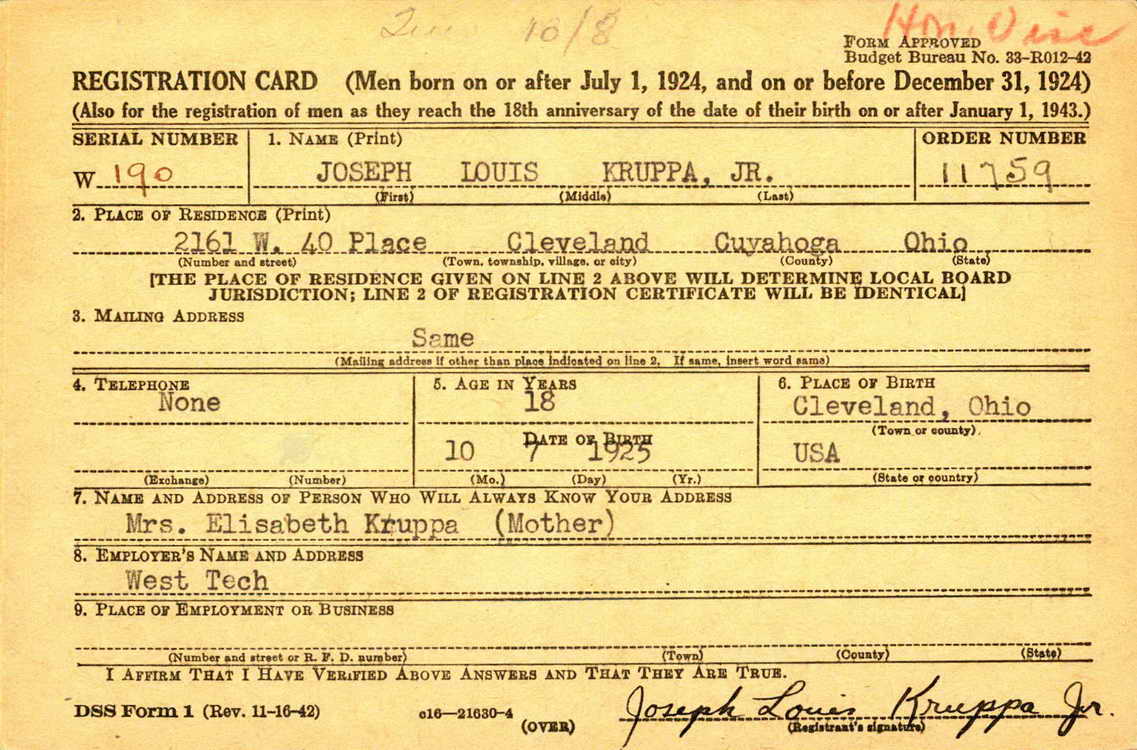 10/8
Hon. Disc
FORM APPROVED
Budget Bureau No. 33-R012-42
REGISTRATION CARD (Men born on or after July 1, 1924, and on or before December 31, 1924)
(Also for the registration of men as they reach the 18th anniversary of the date of their birth on or after January 1, 1943.)
SERIAL NUMBER 1. NAME (Print) ORDER NUMBER
W 190 JOSEPH LOUIS KRUPPA, JR. 11759
(First) (Middle) (Last)
2. PLACE OF RESIDENCE (Print)
2161 W. 40 Place Cleveland Cuyahoga Ohio
(Number and street) (Town, township, village, or city) (County) (State)
[THE PLACE OF RESIDENCE GIVEN ON LINE 2 ABOVE WILL DETERMINE LOCAL BOARD
JURISDICTION; LINE 2 OF REGISTRATION CERTIFICATE WILL BE IDENTICAL]
3. MAILING ADDRESS
Same
(Mailing address if other than place indicated on line 2. If same, insert word same)
4. TELEPHONE 5. AGE IN YEARS 6. PLACE OF BIRTH
None 18 Cleveland, Ohio
(Town or county)
DATE OF BIRTH
10 7 1925 USA
(Exchange) (Number) (Mo.) (Day) (Yr.) (State or country)
7. NAME AND ADDRESS OF PERSON WHO WILL ALWAYS KNOW YOUR ADDRESS
Mrs. Elisabeth Kruppa (Mother)
8. EMPLOYER'S NAME AND ADDRESS
West Tech
9. PLACE OF EMPLOYMENT OR BUSINESS
(Number and street or R. F. D. number) (Town) (County) (State)
I AFFIRM THAT I HAVE VERIFIED ABOVE ANSWERS AND THAT THEY ARE TRUE.
DSS Form 1 (Rev. 11-16-42) c16—21630-4 (OVER) Joseph Louis Kruppa Jr.
(Registrant's signature)